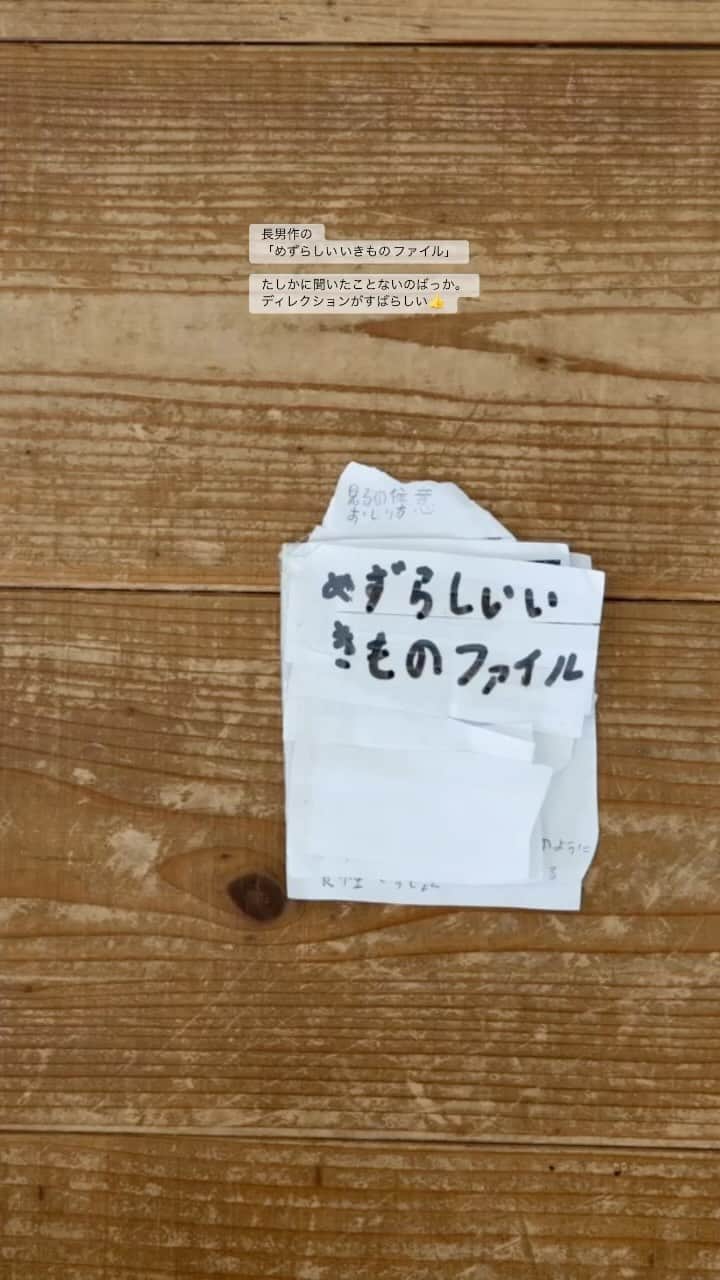 長男作の
「めずらしいいきものファイル」
たしかに聞いたことないのばっか。
ディレクションがすばらしい👍
見るの任意
めずらしいい
きものファイル
のように
る